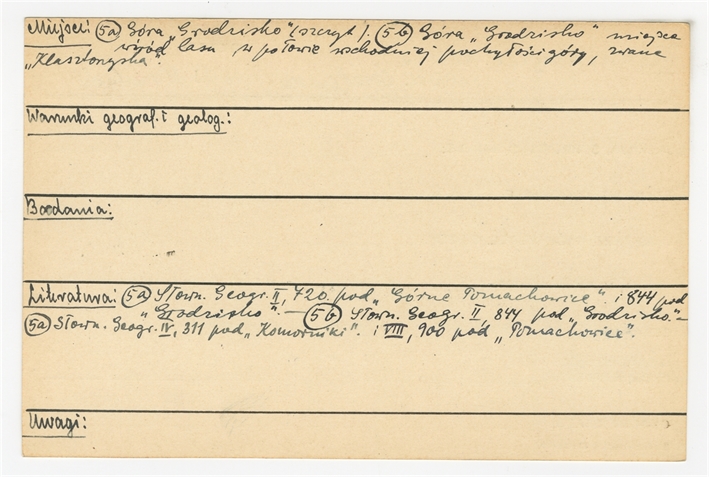 Miejsce: (5a) Góra "Grodzisko" (szczyt). (5b) Góra "Grodzisko" miejsce
wśród lasu w połowie wschodniej pochyłości góry, zwane
"Klasztorzyska".
Warunki geograf. i geolog.:
Badania:
Literatura: (5a) Słown. Geogr. II, 720. pod "Górne Pomachowice". i 844 pod
"Grodzisko". — (5b) Słown. Geogr. II, 844 pod "Grodzisko". –
(5a) Słown. Geogr. IV, 311 pod "Komorniki". i VIII, 900 pod "Pomachowice".
Uwagi: